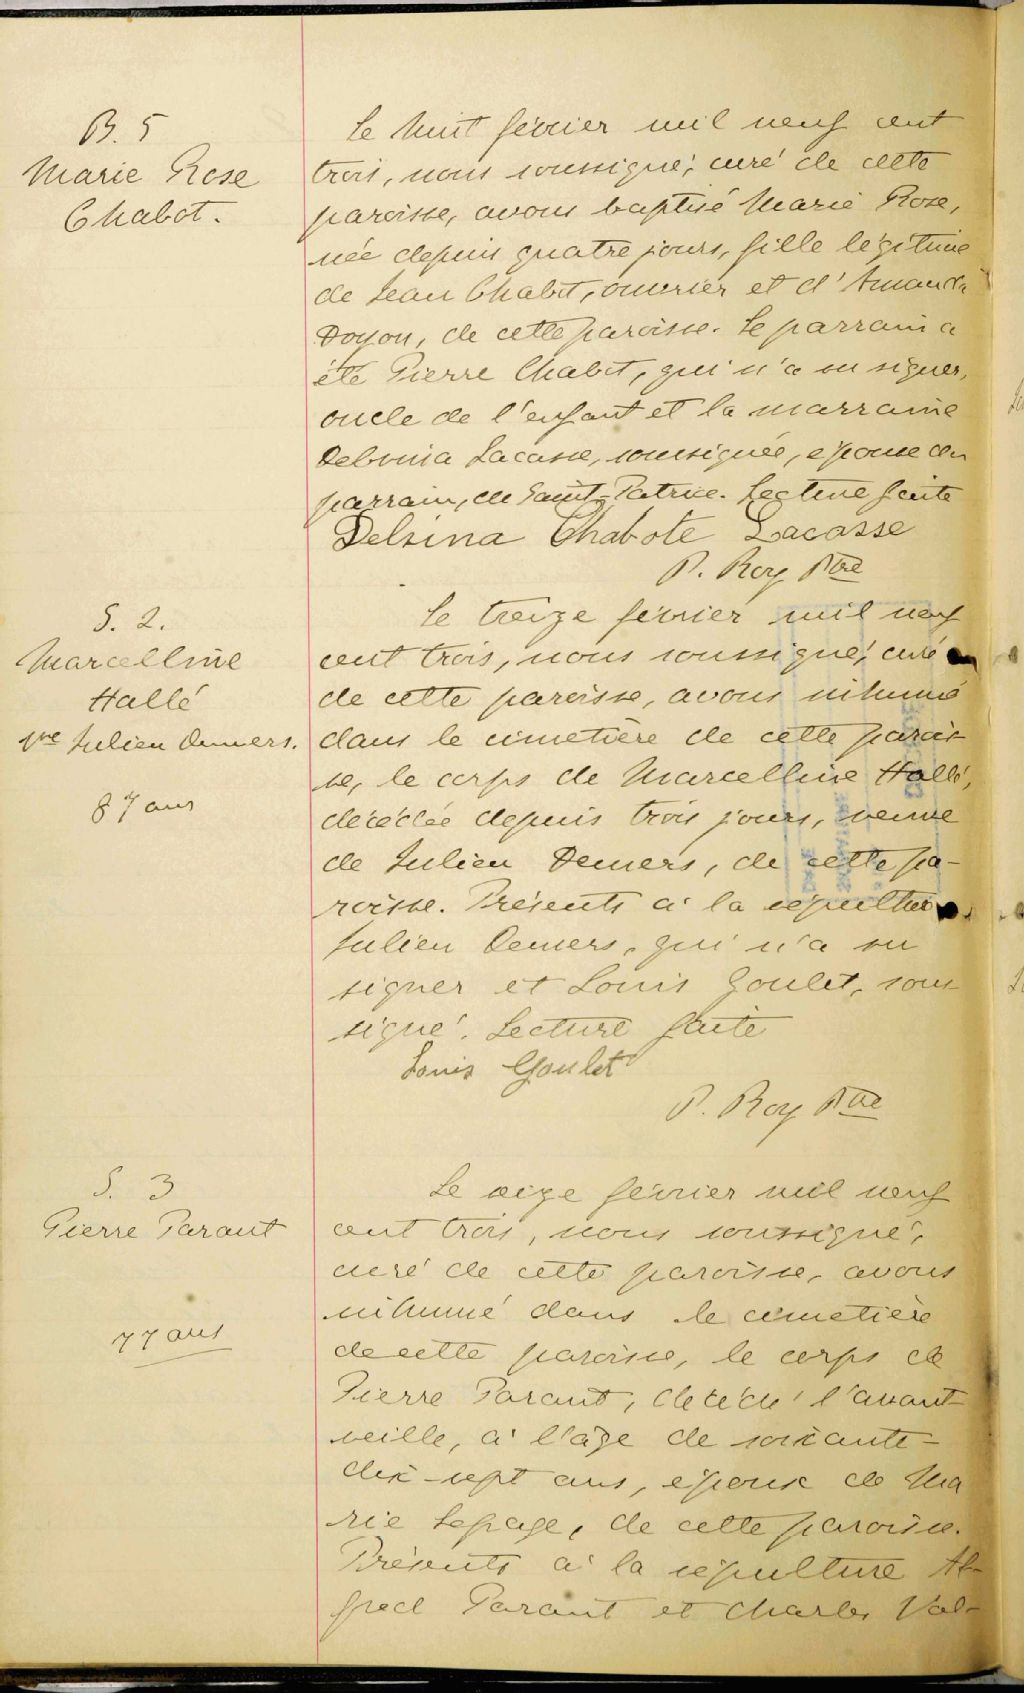 B. 5
Marie Rose
Chabot.
Le huit février mil neuf cent
trois, nous soussigné, curé de cette
paroisse, avons baptisé Marie Rose,
née depuis quatre jours, fille légitime
de Jean Chabot, ouvrier et d'Amanda
Doyon, de cette paroisse. Le parrain a
été Pierre Chabot, qui n'a su signer,
oncle de l'enfant et la marraine
Delvina Lacasse, soussignée, épouse du
parrain, de Saint-Patrice. Lecture faite
Delsina Chabote Lacasse
P. Roy Ptre
S. 2.
Marcelline
Hallé
Vve Julien Demers.
87 ans
Le treize février mil neuf
cent trois, nous soussigné, curé
de cette paroisse, avons inhumé
dans le cimetière de cette parois-
se, le corps de Marcelline Hallé,
décédée depuis trois jours, veuve
de Julien Demers, de cette pa-
roisse. Présents à la sépulture
Julien Demers, qui n'a su
signer et Louis Goulet, sous-
signé. Lecture faite
Louis Goulet
P. Roy Ptre
S. 3
Pierre Parant
77 ans
Le seize février mil neuf
cent trois, nous soussigné,
curé de cette paroisse, avons
inhumé dans le cimetière
de cette paroisse, le corps de
Pierre Parant, décédé l'avant-
veille, à l'âge de soixante-
dix-sept ans, époux de Ma
rie Lepage, de cette paroisse.
Présents à la sépulture Al-
fred Parant et Charles Val-